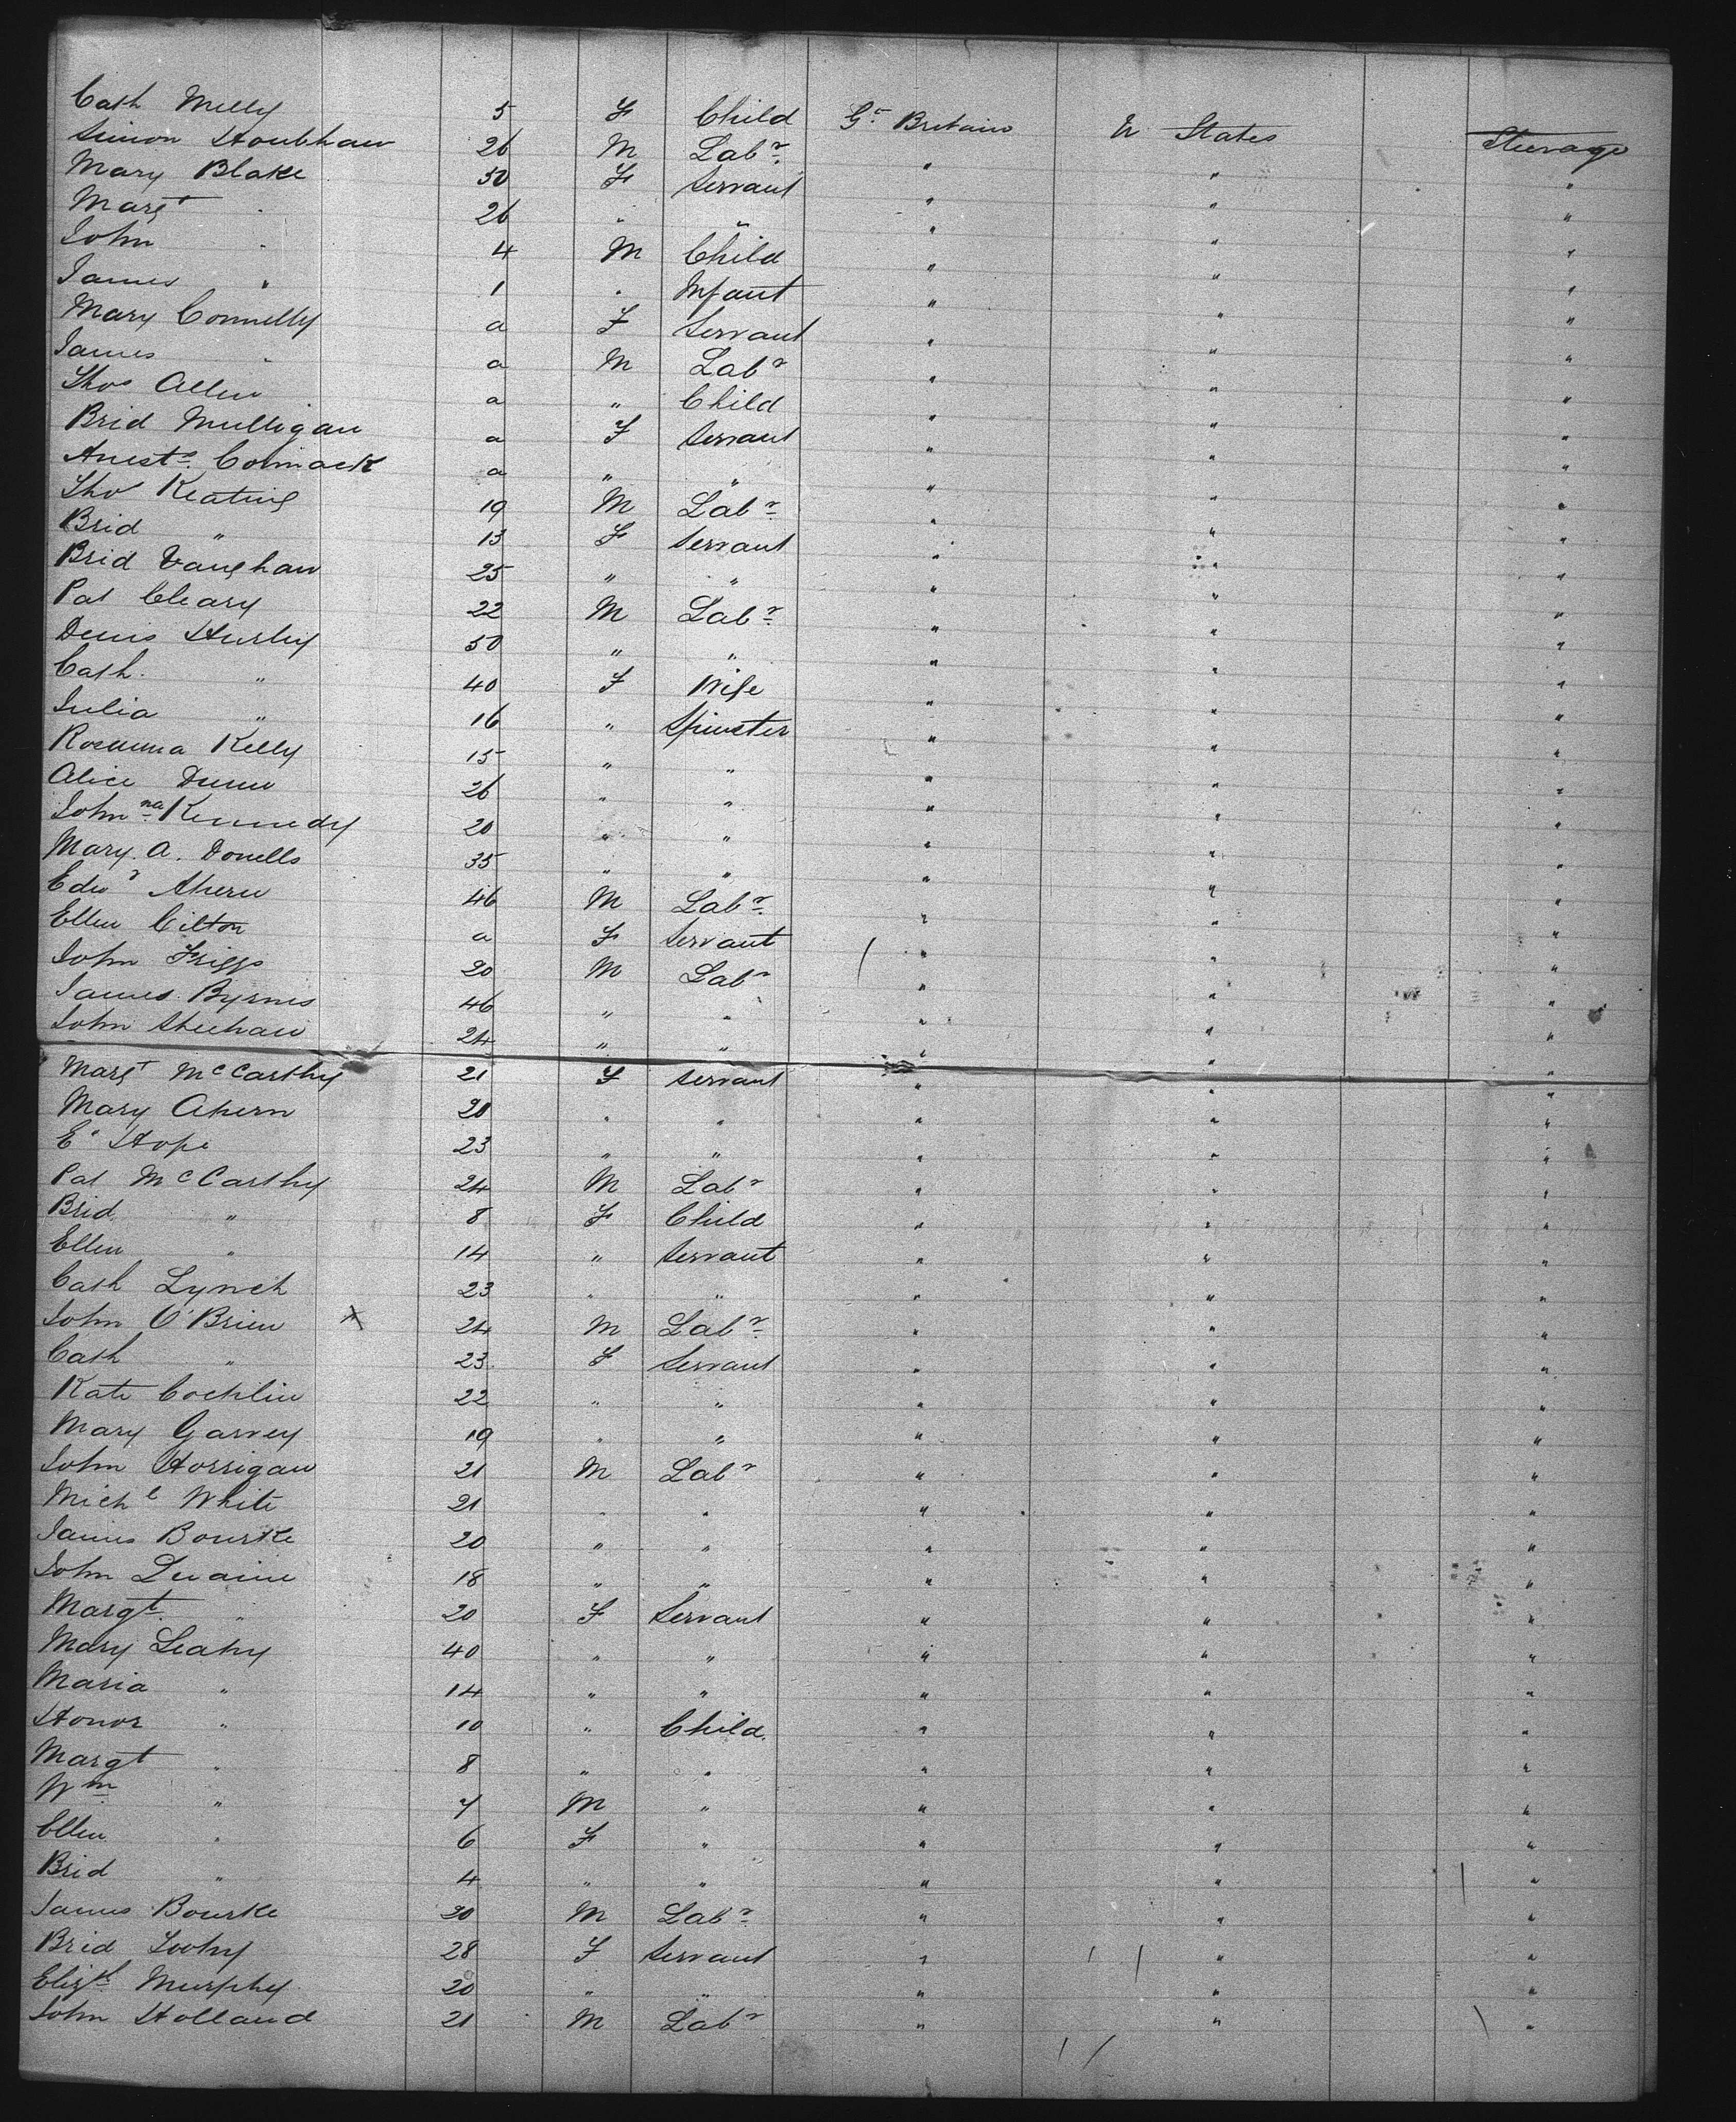 Cath Melly 5 F Child Gt Britain U States Steerage
Simon Houlihan 26 M Labr " " "
Mary Blake 50 F Servant " " "
Margt " 26 " " " " "
John " 4 M Child " " "
James " 1 " Infant " " "
Mary Connelly a F Servant " " "
James " a M Labr " " "
Thos Allen a " Child " " "
Brid Mulligan a F Servant " " "
Anasta Cormack a " " " " "
Thos Keating 19 M Labr " " "
Brid " 13 F Servant " " "
Brid Vaughan 25 " " " " "
Pat Cleary 22 M Labr " " "
Denis Hurley 50 " " " " "
Cath. " 40 F Wife " " "
Julia " 16 " Spinster " " "
Rosanna Kelly 15 " " " " "
Alice Dunn 26 " " " " "
Johnna Kennedy 20 " " " " "
Mary. A. Donells 35 " " " " "
Edwd Ahern 46 M Labr " " "
Ellen Cilton a F Servant " " "
John Friggs 20 M Labr " " "
James Byrnes 46 " " " " "
John Sheehan 24 " " " " "
Margt McCarthy 21 F Servant " " "
Mary Ahern 20 " " " " "
E. Hope 23 " " " " "
Pat McCarthy 24 M Labr " " "
Brid " 8 F Child " " "
Ellen " 14 " Servant " " "
Cath Lynch 23 " " " " "
John O'Brien X 24 M Labr " " "
Cath " 23 F Servant " " "
Kate Cochlin 22 " " " " "
Mary Garvey 19 " " " " "
John Horrigan 21 M Labr " " "
Michl White 21 " " " " "
James Bourke 20 " " " " "
John 18 " " " " "
Margt " 20 F Servant " " "
Mary Leahy 40 " " " " "
Maria " 14 " " " " "
Honor " 10 " Child " " "
Margt " 8 " " " " "
Wm " 7 M " " " "
Ellen " 6 F " " " "
Brid " 4 " " " " "
James Bourke 20 M Labr " " "
Brid Toohy 28 F Servant " " "
Elizth Murphy 20 " " " " "
John Holland 21 M Labr " " "